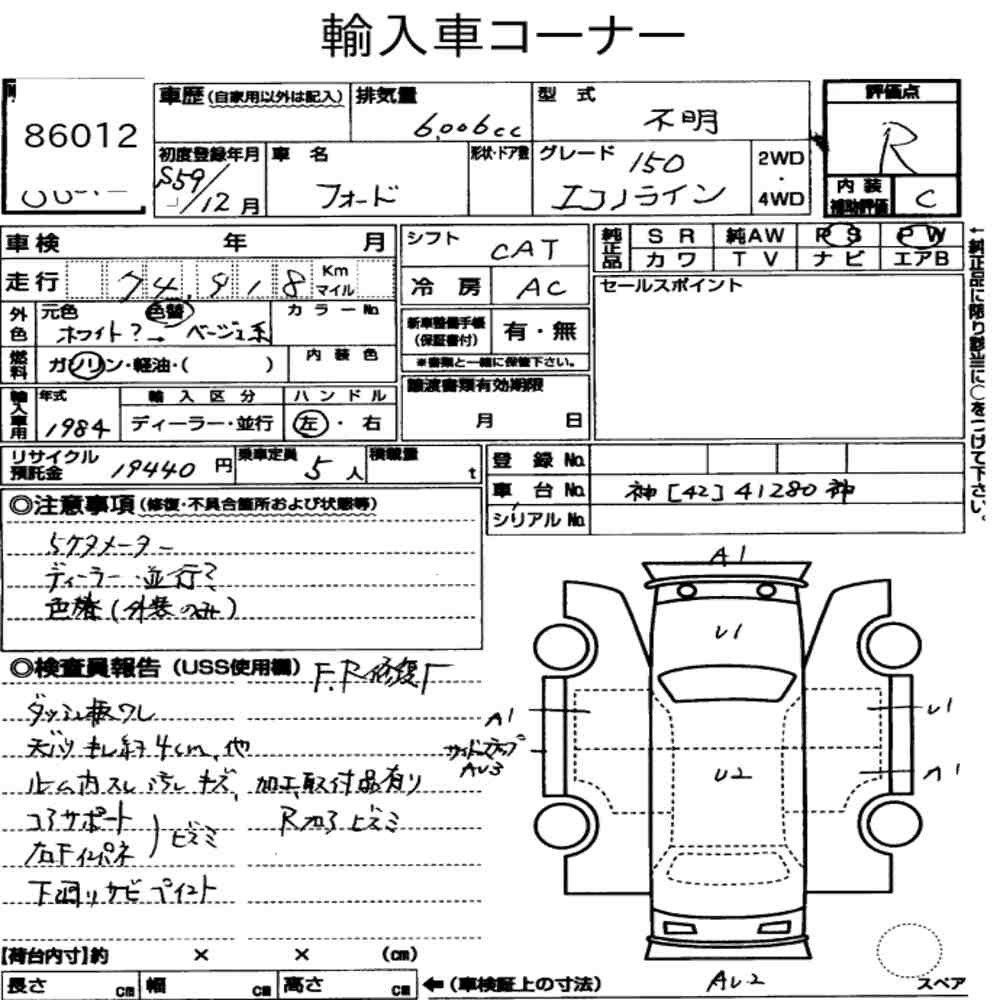 輸入車コーナー
86012
車歴(自家用以外は記入)
排気量
6,006cc
型式
不明
評価点
R
初度登録年月
S59/12月
車名
フォード
形状・ドア数
グレード
150
エコノライン
2WD
・
4WD
内装
補助評価
C
車検 年 月
シフト
CAT
純正品
SR 純AW PS PW
カワ TV ナビ エアB
走行 74,918 Km
マイル
冷房
AC
セールスポイント
外色
元色 色替 カラーNo.
ホワイト?→ベージュ系
新車整備手帳
(保証書付)
有・無
※書類と一緒に保管下さい。
燃料
ガソリン・軽油・( )
内装色
譲渡書類有効期限
月 日
輸入車用
年式
1984
輸入区分
ディーラー・並行
ハンドル
左・右
リサイクル
預託金
19440円
乗車定員
5人
積載量
t
登録No.
車台No.
神[42]41280神
シリアルNo.
←純正品に限り該当に○をつけて下さい。
◎注意事項(修復・不具合箇所および状態等)
5ケタメーター
ディーラー・並行?
色替(外装のみ)
◎検査員報告(USS使用欄)
F.R修復
ダッシュ板ワレ
4cm、他
加工、取付品有り
コアサポート
ヒズミ
下回りサビペイント
A1
U1
A1
U1
サイドステップ
AU3
U2
A1
AU2
【荷台内寸】約 × × (cm)
長さ cm 幅 cm 高さ cm
←(車検証上の寸法)
スペア